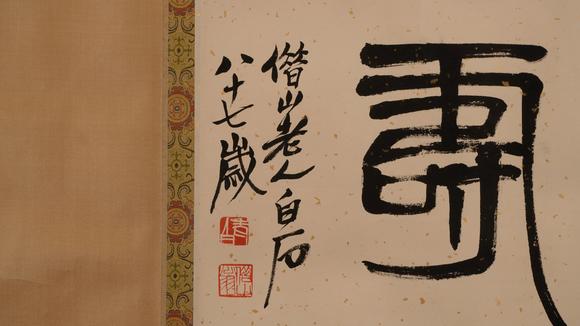 壽
借山老人白石
八十七歲